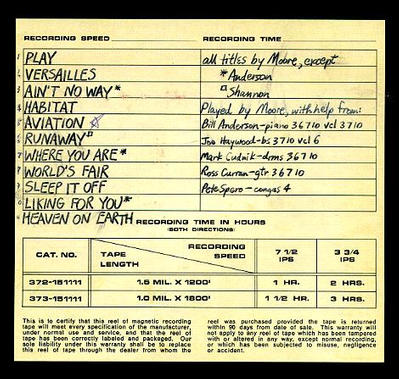 RECORDING SPEED RECORDING TIME
1 PLAY all titles by Moore, except
2 VERSAILLES *Anderson
3 AIN'T NO WAY* □Shannon
4 HABITAT Played by Moore, with help from:
5 AVIATION ☆ Bill Anderson-piano 36710 vcl 3710
6 RUNAWAY□ Jno Haywood-bs 3710 vcl 6
7 WHERE YOU ARE* Mark Cudnik-drms 36710
8 WORLD'S FAIR Ross Curran-gtr 3610
9 SLEEP IT OFF Pete Sporo-congas 4
0 LIKING FOR YOU*
HEAVEN ON EARTH RECORDING TIME IN HOURS
(BOTH DIRECTIONS)
CAT. NO. TAPE LENGTH RECORDING SPEED 7 1/2 IPS 3 3/4 IPS
372-151111 1.5 MIL. X 1200' 1 HR. 2 HRS.
373-151111 1.0 MIL X 1800' 1 1/2 HR. 3 HRS.
This is to certify that this reel of magnetic recording
tape will meet every specification of the manufacturer,
under normal use and service, and that the reel of
tape has been correctly labeled and packaged. Our
sole liability under this warranty shall be to replace
this reel of tape through the dealer from whom the
reel was purchased provided the tape is returned
within 90 days from date of sale. This warranty will
not apply to any reel of tape which has been tampered
with or altered in any way, except normal recording,
or which has been subjected to misuse, negligence
or accident.